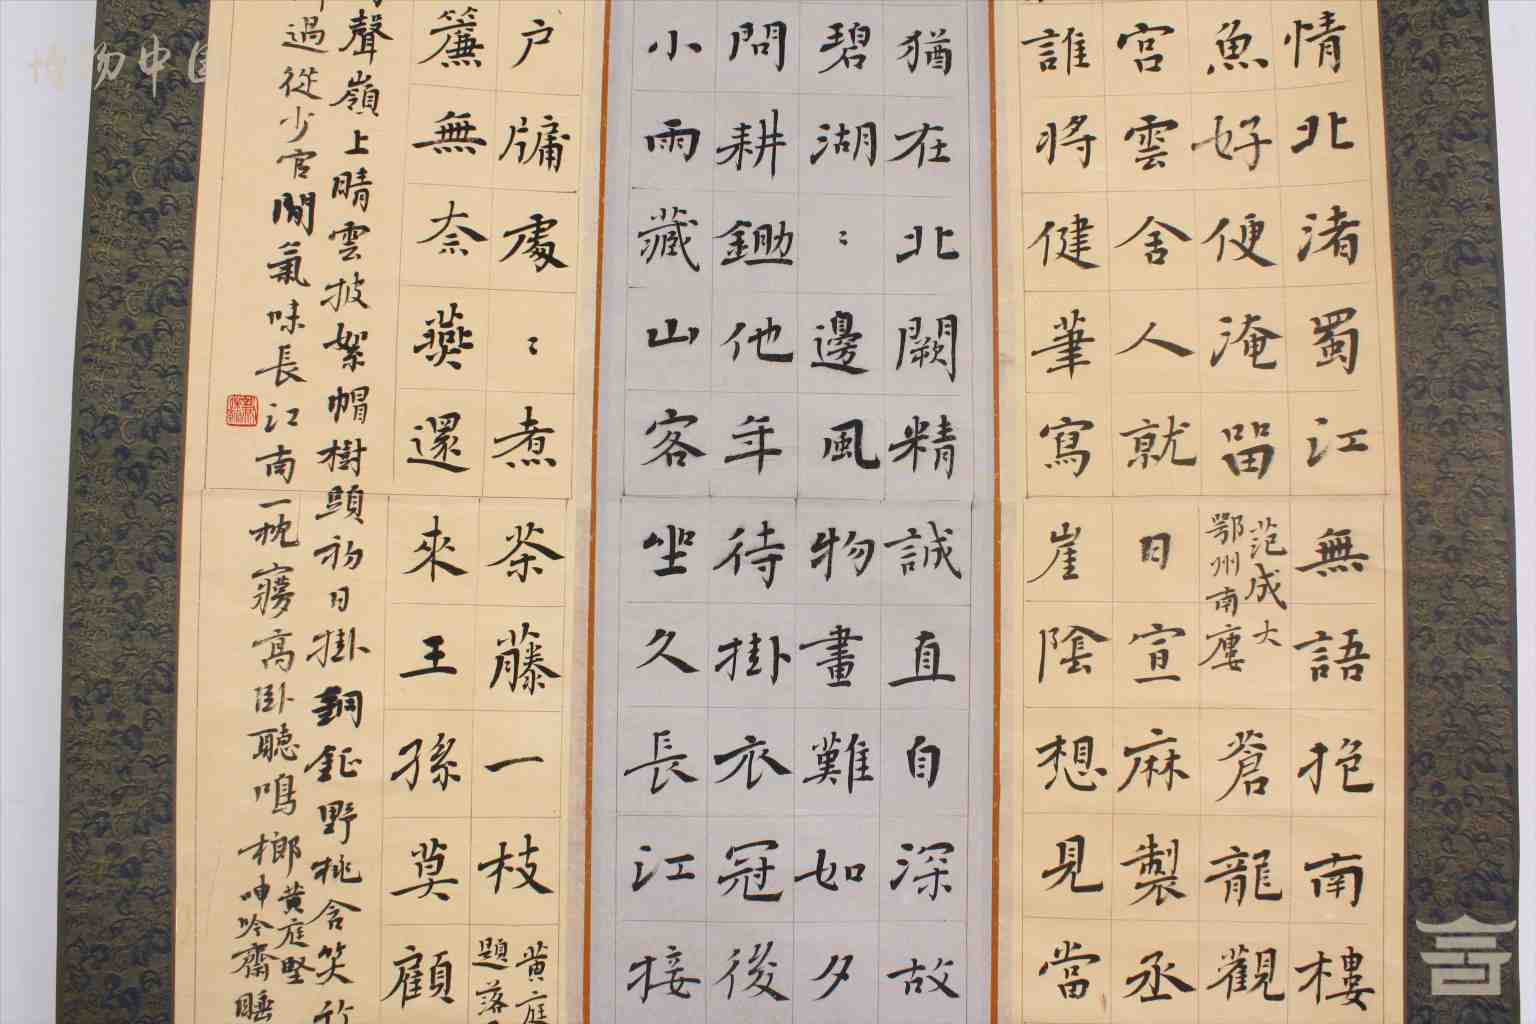 情北渚蜀江無語抱南樓
魚好便淹留
范成大
鄂州南樓
蒼龍觀
宮雲舍人就日宣麻製丞
誰將健筆寫崖陰想見當
猶在北闕精誠直自深故
碧湖〻邊風物畫難如夕
問耕鋤他年待掛衣冠後
小雨藏山客坐久長江接
户牖處〻煮茶藤一枝
黄庭
題落
簾無奈燕還來王孫莫顧
聲嶺上晴雲披絮帽樹頭初日掛銅鉦野桃含笑竹
過從少官閒氣味長江南一枕夢高卧聽鳴榔
黄庭堅
呻吟齋睡
博物中国